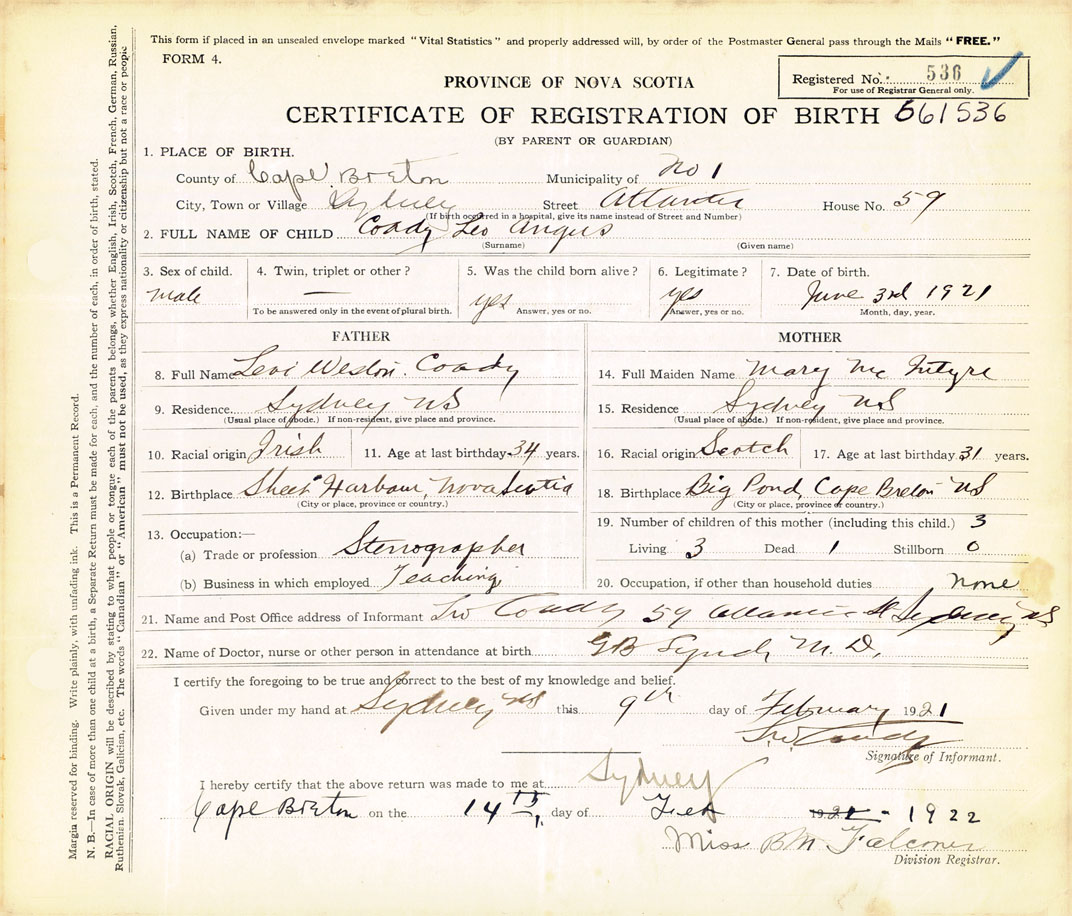 This form if placed in an unsealed envelope marked "Vital Statistics" and properly addressed will, by order of the Postmaster General pass through the Mails "FREE."
FORM 4.
Registered No. 536
For use of Registrar General only.
PROVINCE OF NOVA SCOTIA
CERTIFICATE OF REGISTRATION OF BIRTH 561536
(BY PARENT OR GUARDIAN)
1. PLACE OF BIRTH.
County of Cape Breton Municipality of No 1
City, Town or Village Sydney Street Atlantic House No. 59
(If birth occurred in a hospital, give its name instead of Street and Number)
2. FULL NAME OF CHILD Coady Leo Angus
(Surname) (Given name)
3. Sex of child. 4. Twin, triplet or other? 5. Was the child born alive? 6. Legitimate? 7. Date of birth.
male — yes yes June 3rd 1921
To be answered only in the event of plural birth. Answer, yes or no. Answer, yes or no. Month, day, year.
FATHER
8. Full Name Levi Weston Coady
9. Residence Sydney NS
(Usual place of abode.) If non-resident, give place and province.
10. Racial origin Irish 11. Age at last birthday 34 years.
12. Birthplace Sheet Harbour, Nova Scotia
(City or place, province or country.)
13. Occupation:—
(a) Trade or profession Stenographer
(b) Business in which employed Teaching
MOTHER
14. Full Maiden Name Mary Mc Intyre
15. Residence Sydney NS
(Usual place of abode.) If non-resident, give place and province.
16. Racial origin Scotch 17. Age at last birthday 31 years.
18. Birthplace Big Pond, Cape Breton NS
(City or place, province or country.)
19. Number of children of this mother (including this child.) 3
Living 3 Dead 1 Stillborn 0
20. Occupation, if other than household duties none
21. Name and Post Office address of Informant Coady 59 Atlantic St Sydney NS
22. Name of Doctor, nurse or other person in attendance at birth GB Lynch M. D.
I certify the foregoing to be true and correct to the best of my knowledge and belief.
Given under my hand at Sydney NS this 9th day of February 1921
Coady
Signature of Informant.
I hereby certify that the above return was made to me at Sydney
Cape Breton on the 14th day of Feb 1921 1922
Miss BM Falconer
Division Registrar.
Margin reserved for binding. Write plainly, with unfading ink. This is a Permanent Record.
N. B.—In case of more than one child at a birth, a Separate Return must be made for each, and the number of each, in order of birth, stated.
RACIAL ORIGIN will be described by stating to what people or tongue each of the parents belongs, whether English, Irish, Scotch, French, German, Russian,
Ruthenian, Slovak, Galician, etc. The words "Canadian" or "American" must not be used, as they express nationality or citizenship but not a race or people